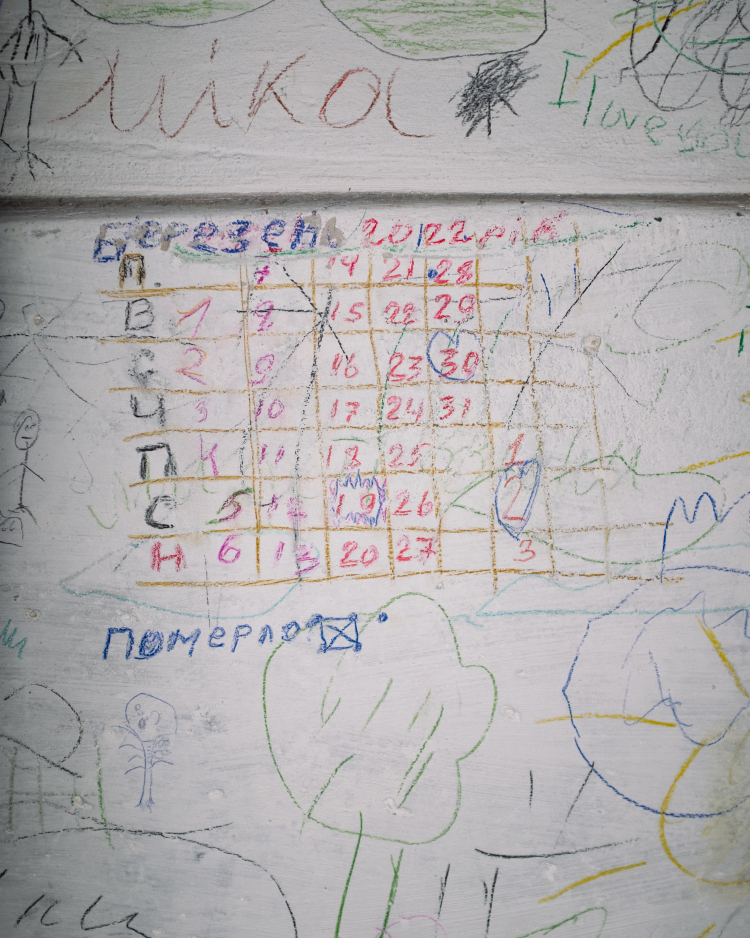 ліка
I love you
Березень 2022 рік
П. 7 14 21 28
В 1 8 15 22 29
С 2 9 16 23 30
Ч 3 10 17 24 31
П 4 11 18 25 1
С 5 12 19 26 2
Н 6 13 20 27 3
Померло